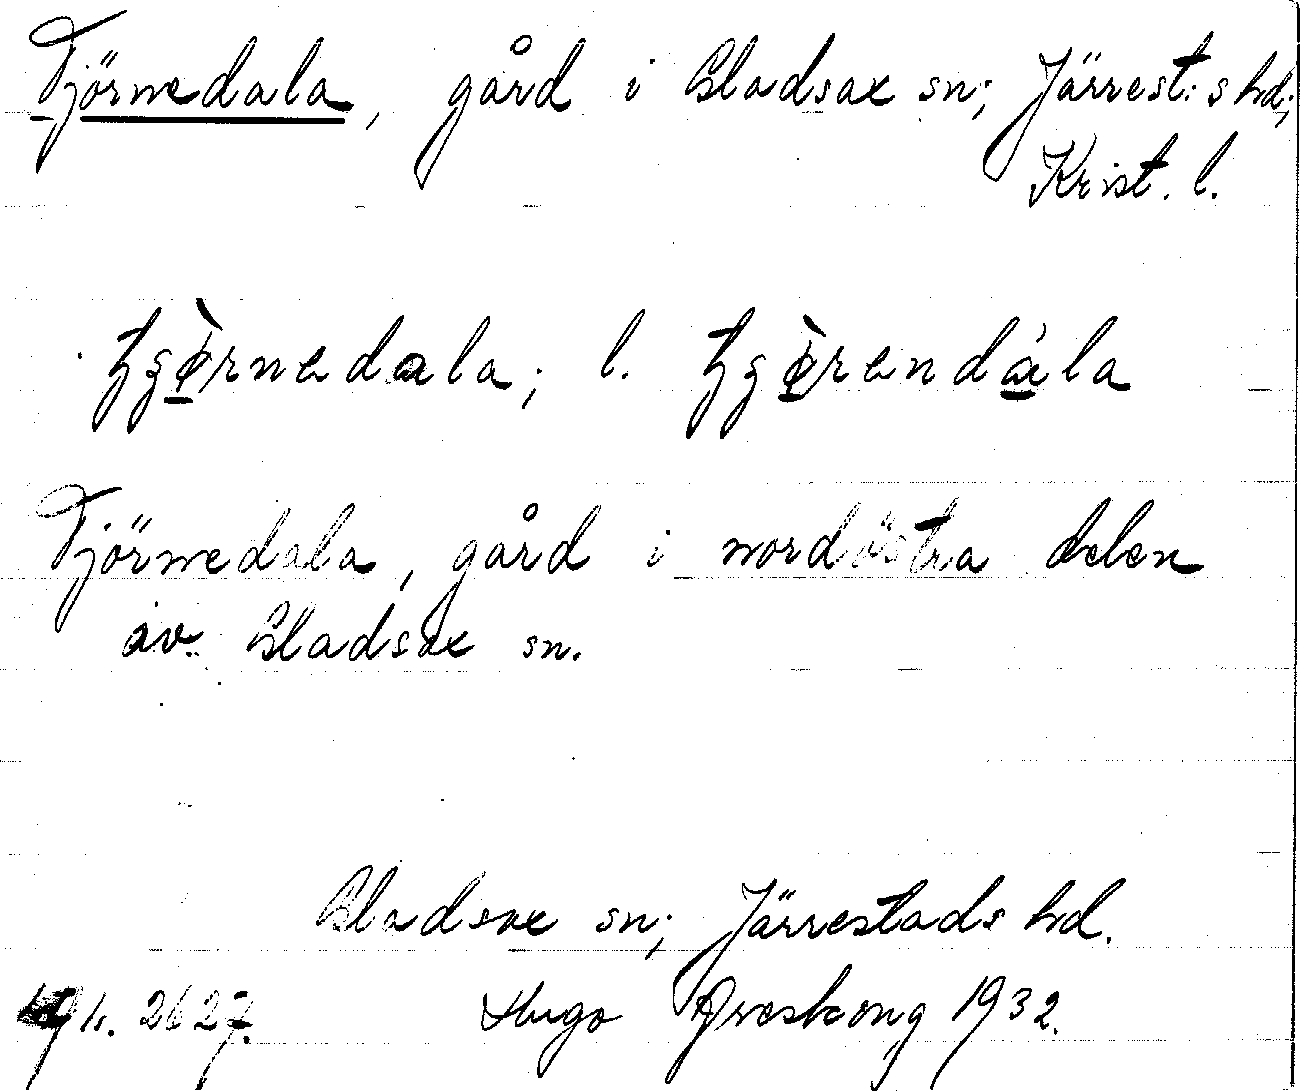 Tjörnedala, gård i Gladsax sn; Järrest:s hd;
Krist. l.
tjø̀rnedala; l. tjø̀rendála
Tjörnedala, gård i nordöstra delen
av Gladsax sn.
Gladsax sn; Järrestads hd.
2627. Hugo Areskoug 1932.